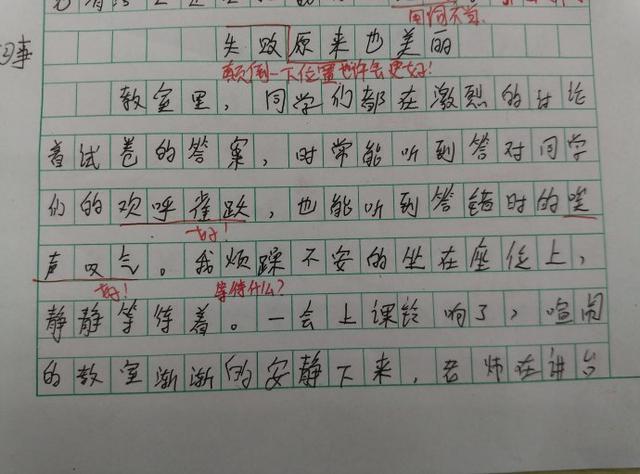 用词不当
因事
失败原来也美丽
颠倒一下位置也许会更好!
教室里，同学们都在激烈的讨论
着试卷的答案，时常能听到答对同学
们的欢呼雀跃，也能听到答错时的唉
好!
声叹气。我烦躁不安的坐在座位上，
好!
等待什么?
静静等待着。一会上课铃响了，喧闹
的教室渐渐的安静下来，老师在讲台